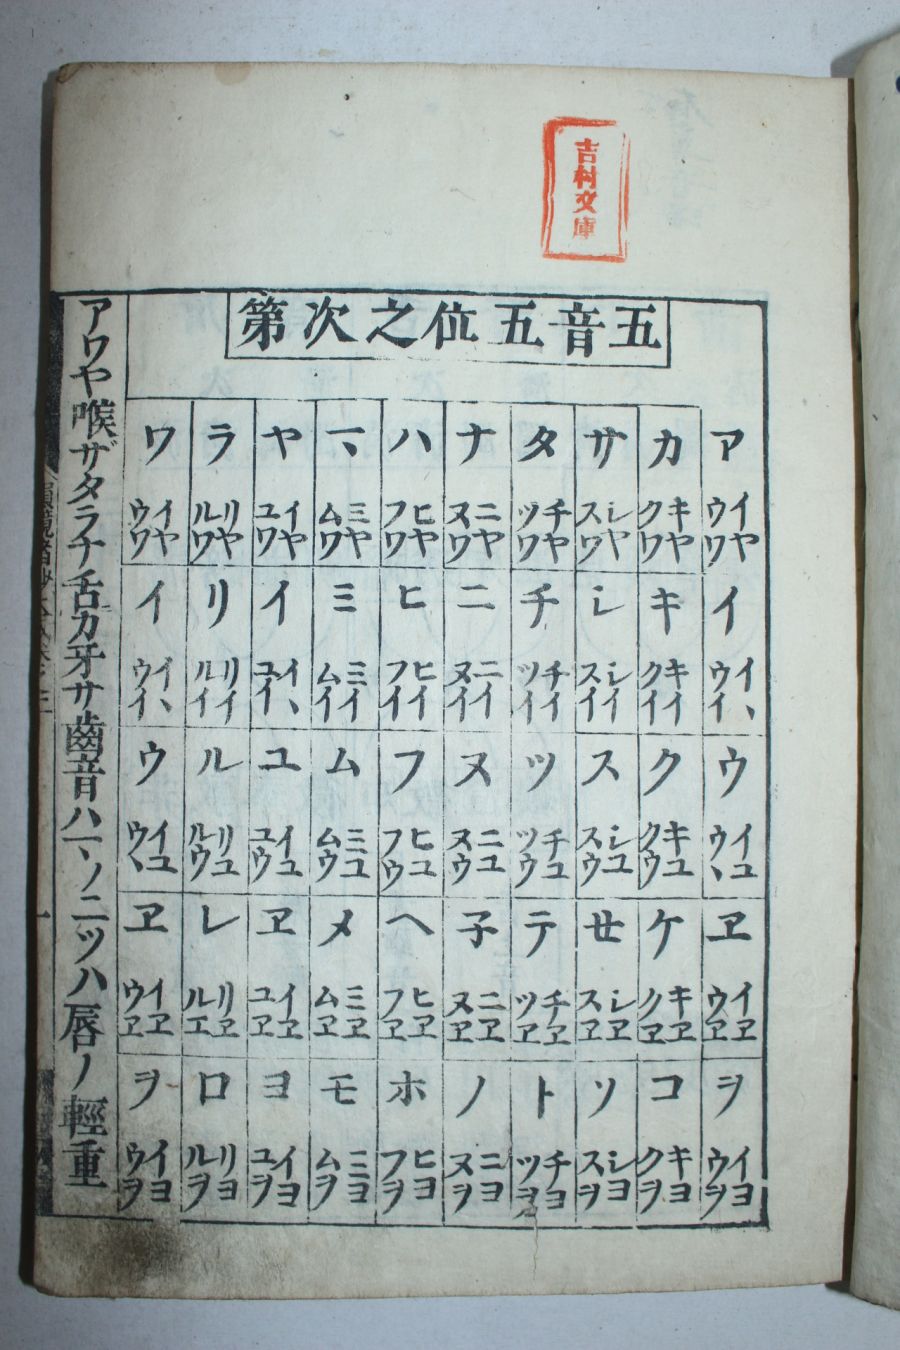 吉村文庫
五音五位之次第
ア イヤ ウワ イ イ、 ウイ ウ イユ ウ、 ヱ イヱ ウヱ ヲ イヨ ウヲ
カ キヤ クワ キ キイ クイ ク キユ クウ ケ キヱ クヱ コ キヨ クヲ
サ シヤ スワ シ シイ スイ ス シユ スウ セ シヱ スヱ ソ シヨ スヲ
タ チヤ ツワ チ チイ ツイ ツ チユ ツウ テ チヱ ツヱ ト チヨ ツヲ
ナ ニヤ ヌワ ニ ニイ ヌイ ヌ ニユ ヌウ 子 ニヱ ヌヱ ノ ニヨ ヌヲ
ハ ヒヤ フワ ヒ ヒイ フイ フ ヒユ フウ ヘ ヒヱ フヱ ホ ヒヨ フヲ
マ ミヤ ムワ ミ ミイ ムイ ム ミユ ムウ メ ミヱ ムヱ モ ミヨ ムヲ
ヤ イヤ ユワ イ イ、 ユイ ユ イユ ユウ ヱ イヱ ユヱ ヨ イヨ ユヲ
ラ リヤ ルワ リ リイ ルイ ル リユ ルウ レ リヱ ルエ ロ リヨ ルヲ
ワ イヤ ウワ イ イ、 ウイ ウ イユ ウ、 ヱ イヱ ウヱ ヲ イヨ ウヲ
アワヤ喉ザタラナ舌カ牙サ齒音ハマノ二ツハ唇ノ輕重